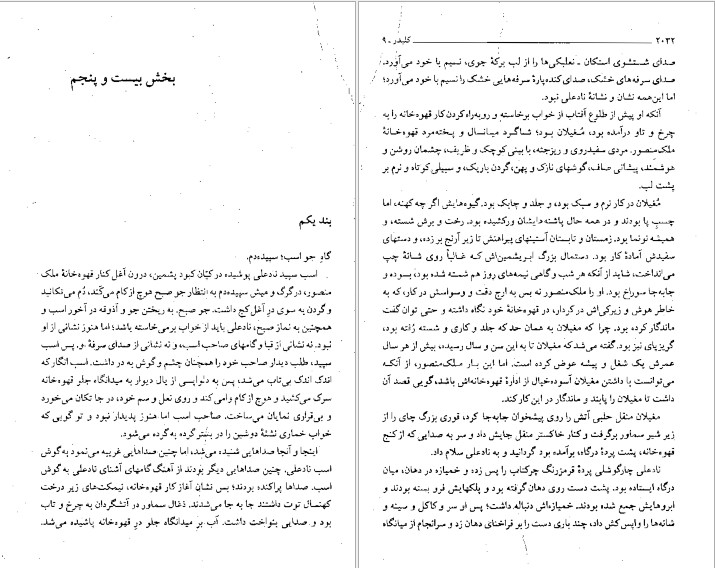 بخش بیست و پنجم
بند یکم
گاوِ جو اسب؛ سپیده‌دم.
اسب سپید نادعلی پوشیده در کپان کبود پشمین، درون آغل کنار قهوه‌خانهٔ ملک
منصور، در گرگ و میش سپیده‌دم به انتظار جو صبح هوچ از کام می‌کَند، دُم می‌تکانید
و گردن به سوی در آغل کج داشت. جو صبح. به ریختن جو و آذوقه در آخور اسب و
همچنین به نماز صبح، نادعلی باید از خواب برمی‌خاسته باشد؛ اما هنوز نشانی از او
نبود. نه نشانی از قبا و گامهای صاحب اسب، و نه نشانی از صدای سرفهٔ او. پس اسب
سپید، طلب دیدار صاحب خود را همچنان چشم و گوش به در داشت. اسب انگار که
اندک اندک بی‌تاب می‌شد، پس به دلواپسی از یال دیوار به میدانگاه جلو قهوه‌خانه
سرک می‌کشید و هوچ از کام وامی‌کند و روی نعل و سم خود، در جا تکان می‌خورد
و بی‌قراری نمایان می‌ساخت. صاحب اسب اما هنوز پدیدار نبود و تو گویی که
خواب خماری نشئهٔ دوشین را در بستر گرده به گرده می‌شود.
اینجا و آنجا صداهایی شنیده می‌شد، اما چنین صداهایی غریبه می‌نمود به گوش
اسب نادعلی. چنین صداهایی دیگر بودند از آهنگ گامهای آشنای نادعلی به گوش
اسب. صداها پراکنده بودند؛ بس نشان آغاز کار قهوه‌خانه، نیمکت‌های زیر درخت
کهنسال توت داشتند جا به جا می‌شدند. ذغال سماور در آتشگردان به چرخ و تاب
بود و صدایی بنواخت داشت. آب بر میدانگاه جلو در قهوه‌خانه پاشیده می‌شد.
۲۰۳۲ ــــــــــــــــــــــــــــــ کلیدر ـ ۹
صدای شستشوی استکان ـ نعلبکی‌ها را از لب برکهٔ جوی، نسیم با خود می‌آورد.
صدای سرفه‌های خشک، صدای کنده‌پارهٔ سرفه‌هایی خشک را نسیم با خود می‌آورد؛
اما این‌همه نشان و نشانهٔ نادعلی نبود.
آنکه او پیش از طلوع آفتاب از خواب برخاسته و روبه‌راه‌کردن کار قهوه‌خانه را به
چرخ و تاو درآمده بود، مُغیلان بود؛ شاگرد میانسال و پخته‌مرد قهوه‌خانهٔ
ملک‌منصور. مردی سفیدروی و ریزجثه، با بینی کوچک و ظریف، چشمان روشن و
هوشمند، پیشانی صاف، گوشهای نازک و پهن، گردن باریک، و سبیلی کوتاه و نرم بر
پشت لب.
مُغیلان در کار نرم و سبک بود، و جلد و چابک بود. گیوه‌هایش اگر چه کهنه، اما
چسبِ پا بودند و در همه حال پاشنه‌هایشان ورکشیده بود. رخت و برش شسته، و
همیشه نونما بود. زمستان و تابستان آستینهای پیراهنش تا زیر آرنج بر زده، و دستهای
سفیدش آمادهٔ کار بود. دستمال بزرگ ابریشمین‌اش که غالباً روی شانهٔ چپ
می‌انداخت، شاید از آنکه هر شب و گاهی نیمه‌های روز هم شسته شده بود، بسوده و
جابه‌جا سوراخ بود. او را ملک‌منصور نه بس به ارج دقت و وسواسش در کار، که به
خاطر هوش و زیرکی‌اش در کردار، در قهوه‌خانهٔ خود نگاه داشته و حتی توان گفت
ماندگار کرده بود، چرا که مغیلان به همان حد که جلد و کاری و شسته رُفته بود،
گریزپای نیز بود. گفته می‌شد که مغیلان تا به این سن و سال رسیده، بیش از هر سال
عمرش یک شغل و پیشه عوض کرده است. اما این بار ملک‌منصور، از آنکه
می‌توانست با داشتن مغیلان آسوده‌خیال از ادارهٔ قهوه‌خانه‌اش باشد، گویی قصد آن
داشت تا مغیلان را پابند و ماندگار در این کار کند.
مغیلان منقل حلبی آتش را روی پیشخوان جابه‌جا کرد، قوری بزرگ چای را از
زیر شیر سماور برگرفت و کنار خاکستر منقل جایش داد و سر به صدایی که از کنج
قهوه‌خانه، پشت پردهٔ درگاه، برآمده بود گردانید و به نادعلی سلام داد.
نادعلی چارگوشلی پردهٔ قرمزرنگ چرکتاب را پس زده و خمیازه در دهان، میان
درگاه ایستاده بود. پشت دست روی دهان گرفته بود و پلکهایش فرو بسته بودند و
ابروهایش جمع شده بودند. خمیازه‌اش دنباله داشت؛ پس او سر و کاکل و سینه و
شانه‌ها را واپس کش داد، چند باری دست را بر فراخنای دهان زد و سرانجام از میانگاه